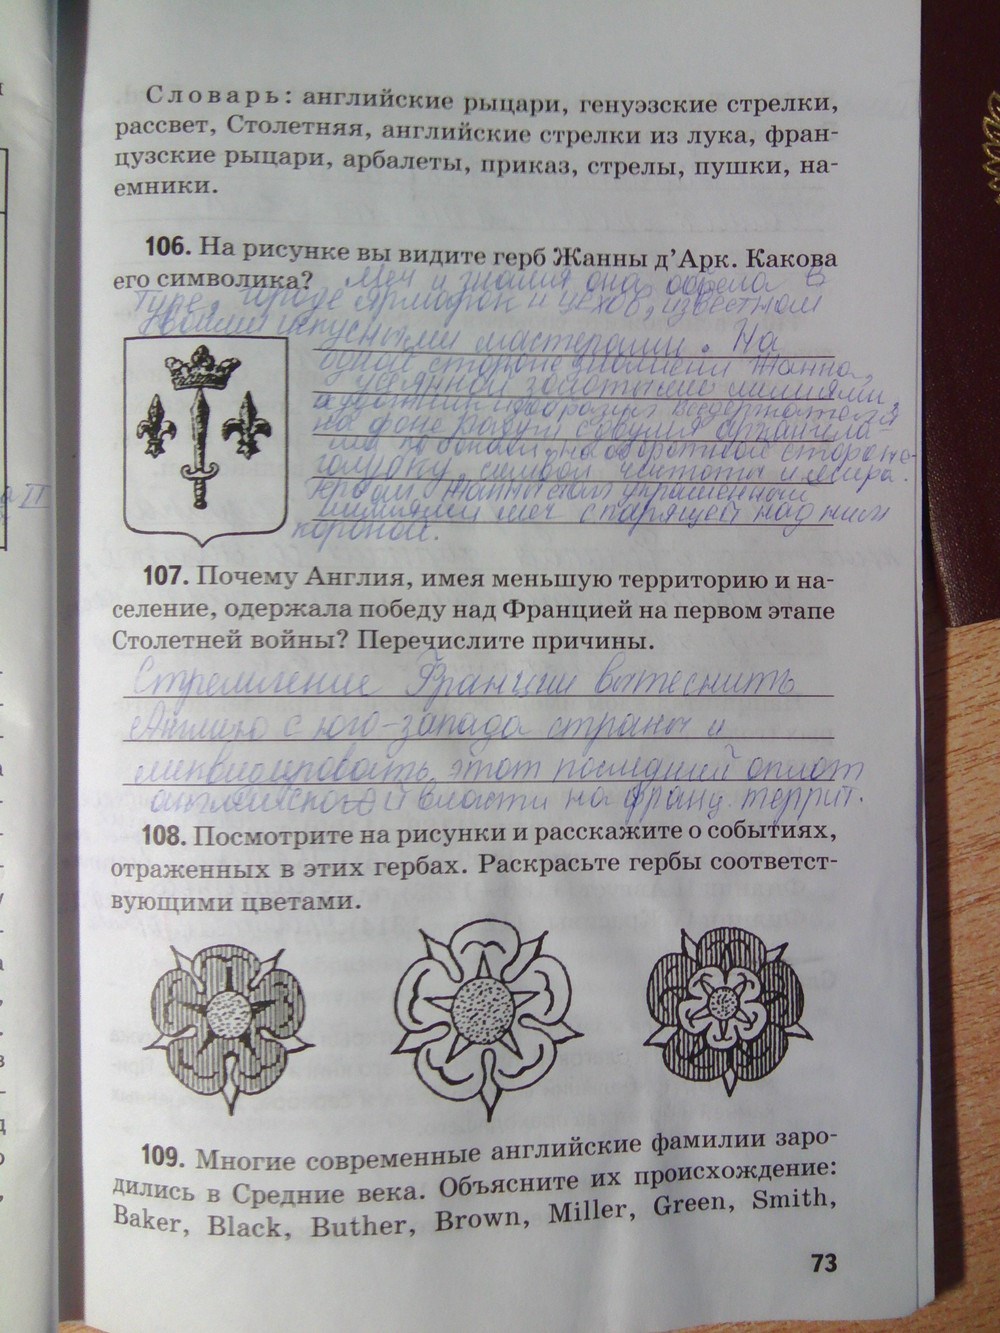 Словарь: английские рыцари, генуэзские стрелки,
рассвет, Столетняя, английские стрелки из лука, фран-
цузские рыцари, арбалеты, приказ, стрелы, пушки, на-
емники.
106. На рисунке вы видите герб Жанны д'Арк. Какова
его символика? Меч и знамя она обрела в
Туре, городе ярмарок и цехов, известном
своими искусными мастерами. На
одной стороне знамени Жанна,
усеянной золотыми лилиями,
художник изобразил Вседержателя
на фоне радуги с двумя архангела-
ми по бокам, на оборотной стороне-
голубку, символ чистоты и мира.
Гербом Жанны стал украшенный
лилиями меч с парящей над ним
короной.
107. Почему Англия, имея меньшую территорию и на-
селение, одержала победу над Францией на первом этапе
Столетней войны? Перечислите причины.
Стремление Франции вытеснить
Англию с юго-запада страны и
ликвидировать этот последний оплот
английской власти на франц. террит.
108. Посмотрите на рисунки и расскажите о событиях,
отраженных в этих гербах. Раскрасьте гербы соответст-
вующими цветами.
109. Многие современные английские фамилии заро-
дились в Средние века. Объясните их происхождение:
Baker, Black, Buther, Brown, Miller, Green, Smith,
73